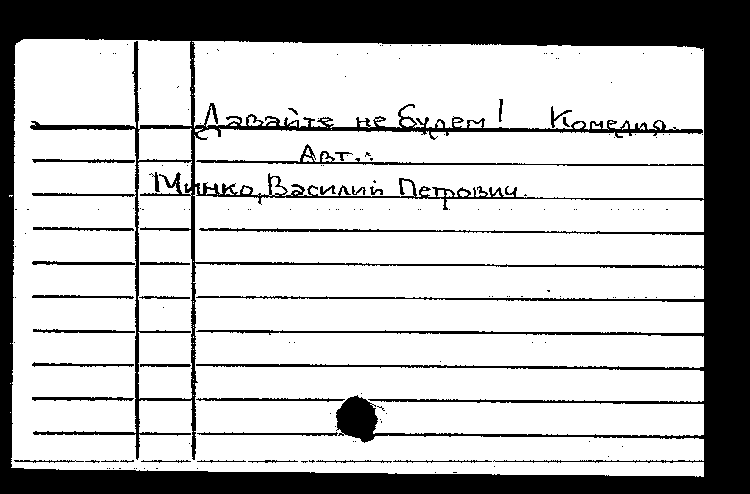 Давайте не будем! Комедия.
Авт.:
Минко, Василий Петрович.